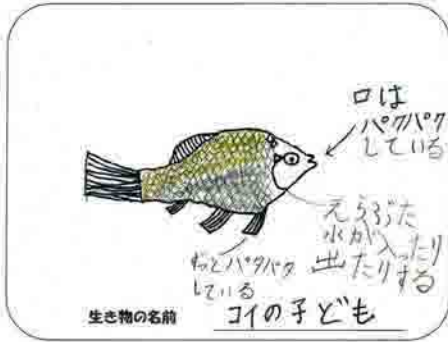 口は
パクパク
している
えらぶた
水が入ったり
出たりする
ずっとパタパタ
している
生き物の名前 コイの子ども